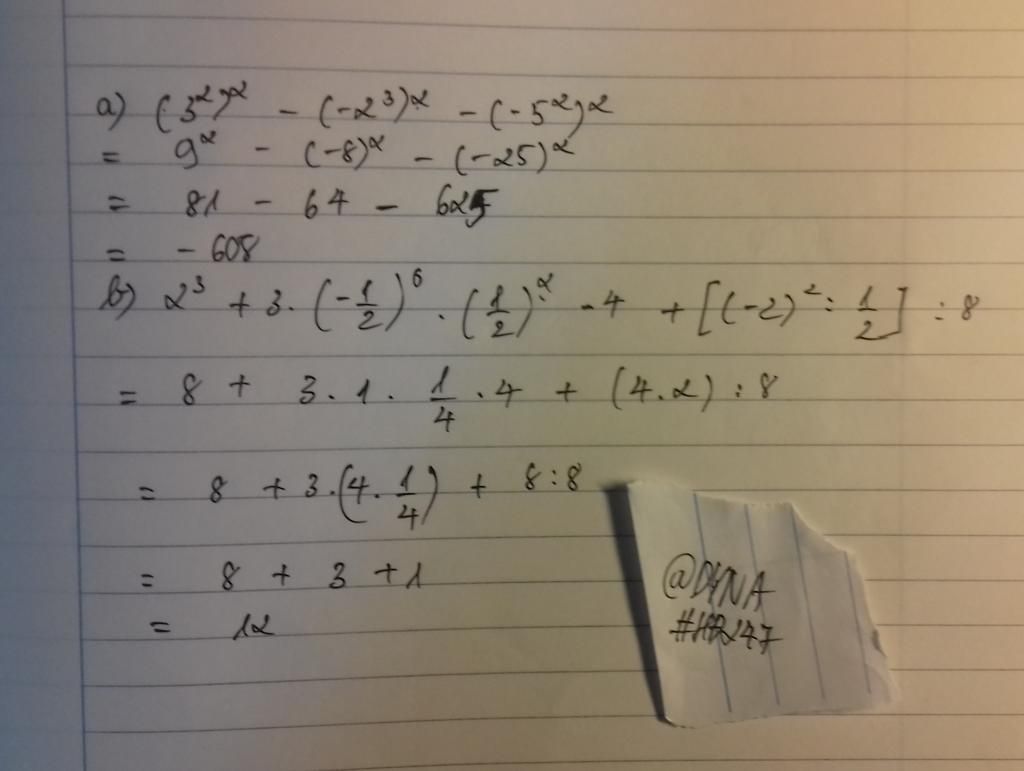 a) (3²)² - (-2³)² - (-5²)²
= 9² - (-8)² - (-25)²
= 81 - 64 - 625
= - 608
b) 2³ + 3. (-1/2)⁶ . (1/2)² - 4 + [(-2)² : 1/2] : 8
= 8 + 3 . 1 . 1/4 . 4 + (4.2) : 8
= 8 + 3.(4. 1/4) + 8:8
= 8 + 3 + 1
= 12
@DYNA